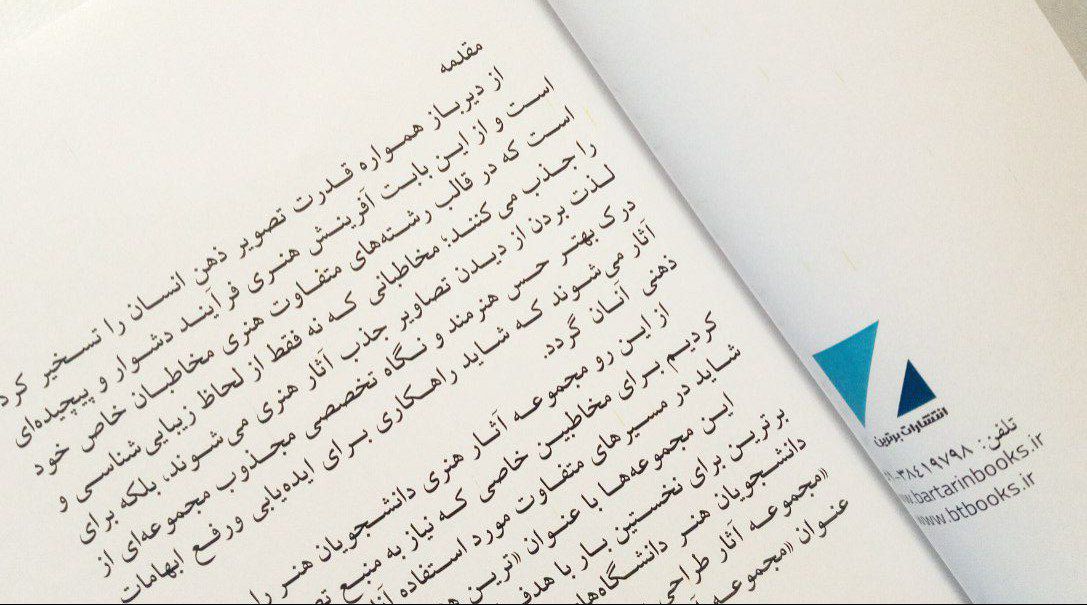 مقدمه
از دیرباز همواره قدرت تصویر ذهن انسان را تسخیر کرد
است و از این بابت آفرینش هنری فرآیند دشوار و پیچیده‌ای
است که در قالب رشته‌های متفاوت هنری مخاطبان خاص خود
را جذب می‌کنند؛ مخاطبانی که نه فقط از لحاظ زیبایی‌شناسی و
لذت بردن از دیدن تصاویر جذب آثار هنری می‌شوند، بلکه برای
درک بهتر حس هنرمند و نگاه تخصصی مجذوب مجموعه‌ای از
آثار می‌شوند که شاید راهکاری برای ایده‌یابی ورفع ابهامات
ذهنی آنان گردد.
از این رو مجموعه آثار هنری دانشجویان هنر را
کردیم برای مخاطبین خاصی که نیاز به منبع
شاید در مسیرهای متفاوت مورد استفاده
این مجموعه‌ها با عنوان «ترین
برترین برای نخستین بار با هدف
دانشجویان هنر دانشگاه‌های
«مجموعه آثار طراحی
عنوان «مجموعه
انتشارات برترین
تلفن: ۳۸٤۱۹۷۹۸
www.bartarinbooks.ir
www.btbooks.ir